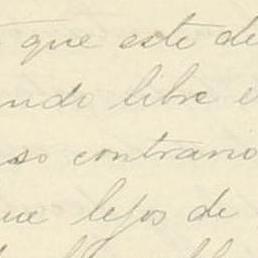 que este de
ndo libre e
so contrario
ue lejos de